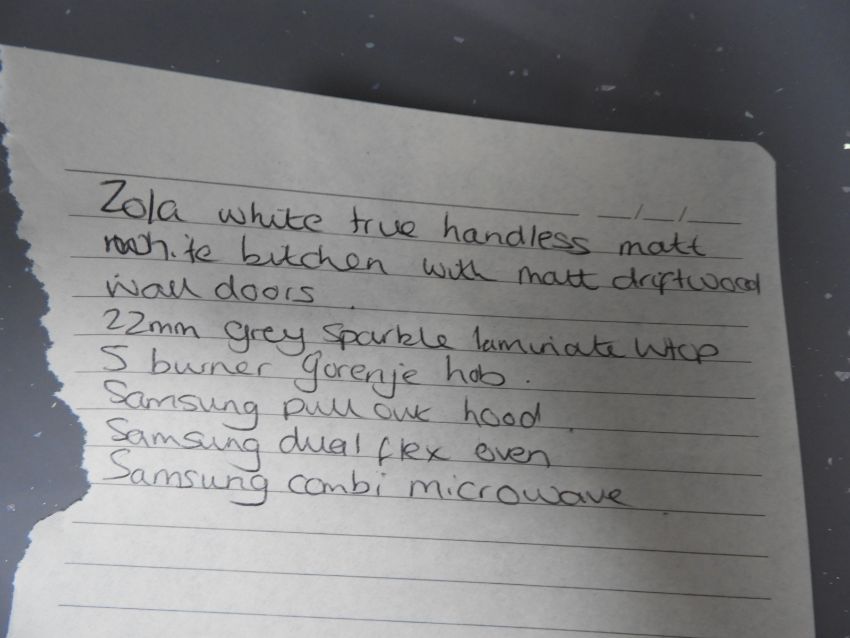 Zola white true handless matt
white kitchen with matt driftwood
wall doors.
22mm grey sparkle laminate wtop
5 burner gorenje hob.
Samsung pull out hood.
Samsung dual flex oven
Samsung combi microwave.
__/__/__